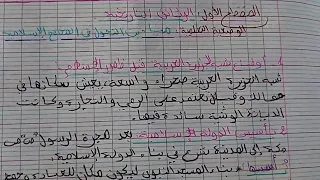 المقطع الأول: الوثائق التاريخية
الوضعية التعلمية: من
1- أوضاع شبه الجزيرة العربية قبل ظهور الإسلام
شبه الجزيرة العربية صحراء واسعة، يعيش سكانها في
قبائل تعتمد على الرعي والتجارة وكانت
الديانة الوثنية سائدة فيها.
2- تأسيس الدولة الإسلامية: بعد هجرة الرسول من
مكة إلى المدينة شرع في بناء الدولة الإسلامية.
بناء المسجد النبوي ليكون مكان للعبادة و